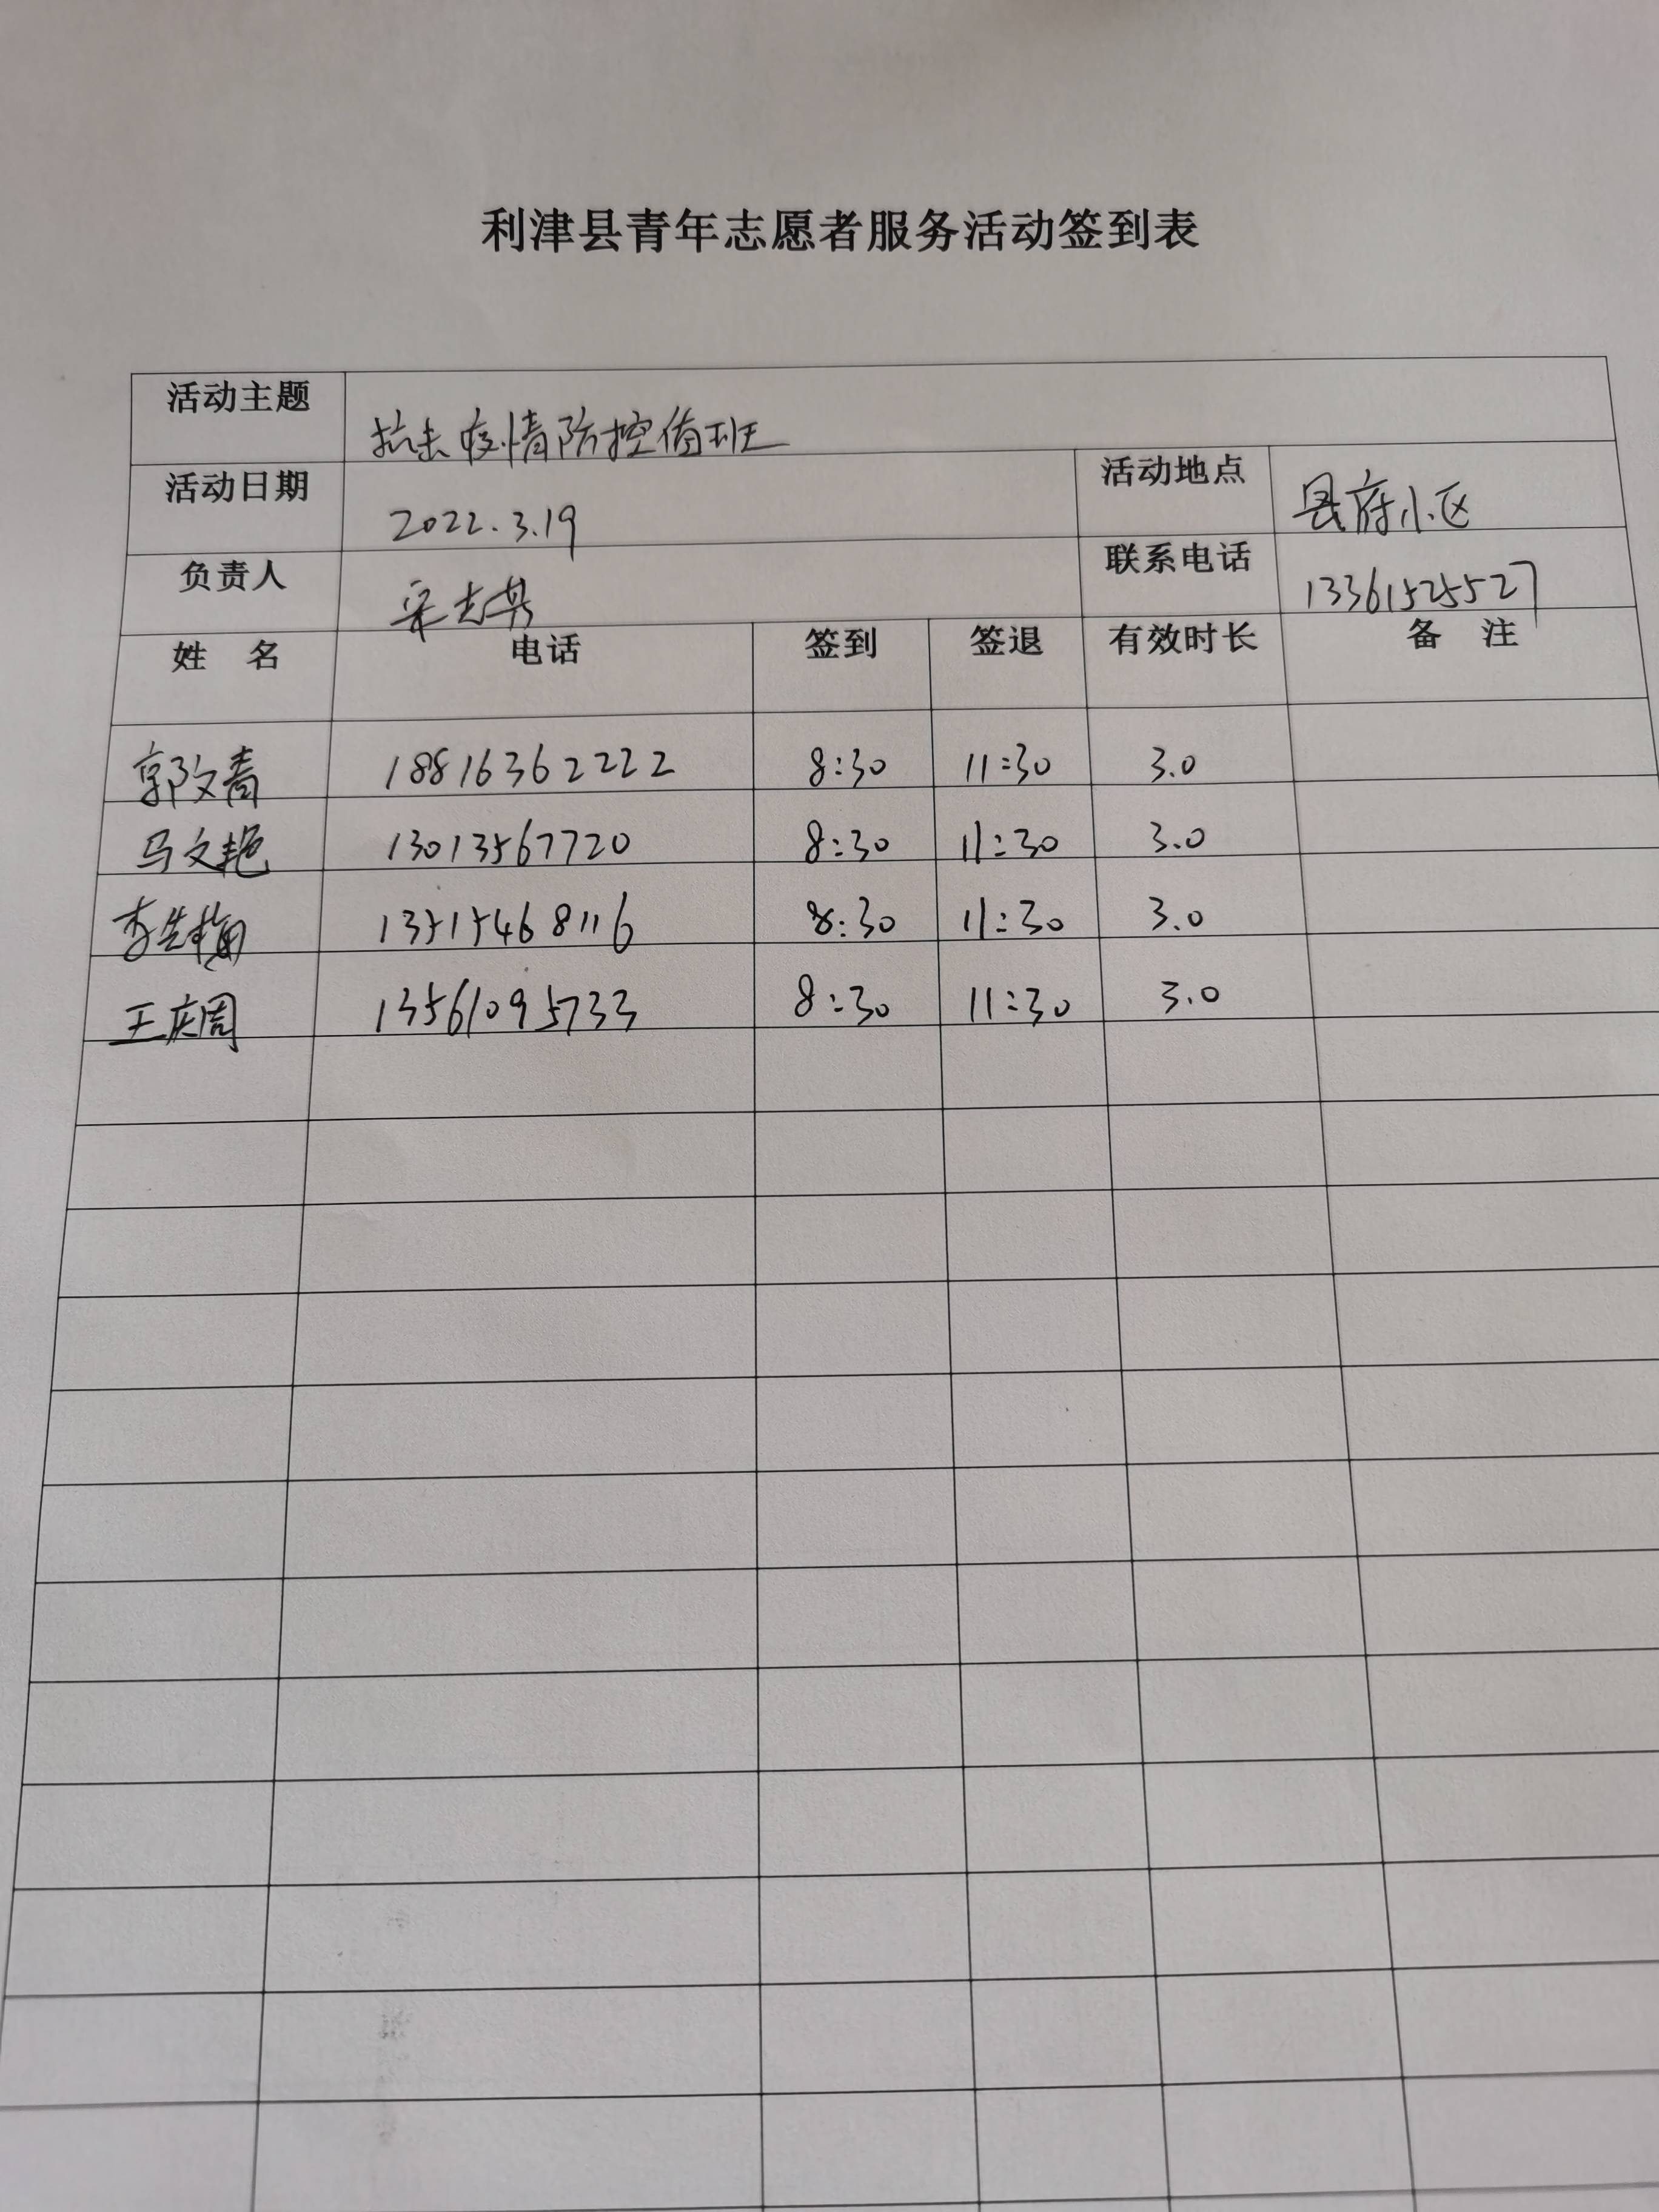 利津县青年志愿者服务活动签到表
活动主题 抗击疫情防控值班
活动日期 2022.3.19 活动地点 县府小区
负责人 宋志 联系电话 13361525527
姓 名 电话 签到 签退 有效时长 备 注
郭文青 18816362222 8:30 11:30 3.0
马文艳 13013567720 8:30 11:30 3.0
李先梅 13515468116 8:30 11:30 3.0
王庆周 13561095733 8:30 11:30 3.0